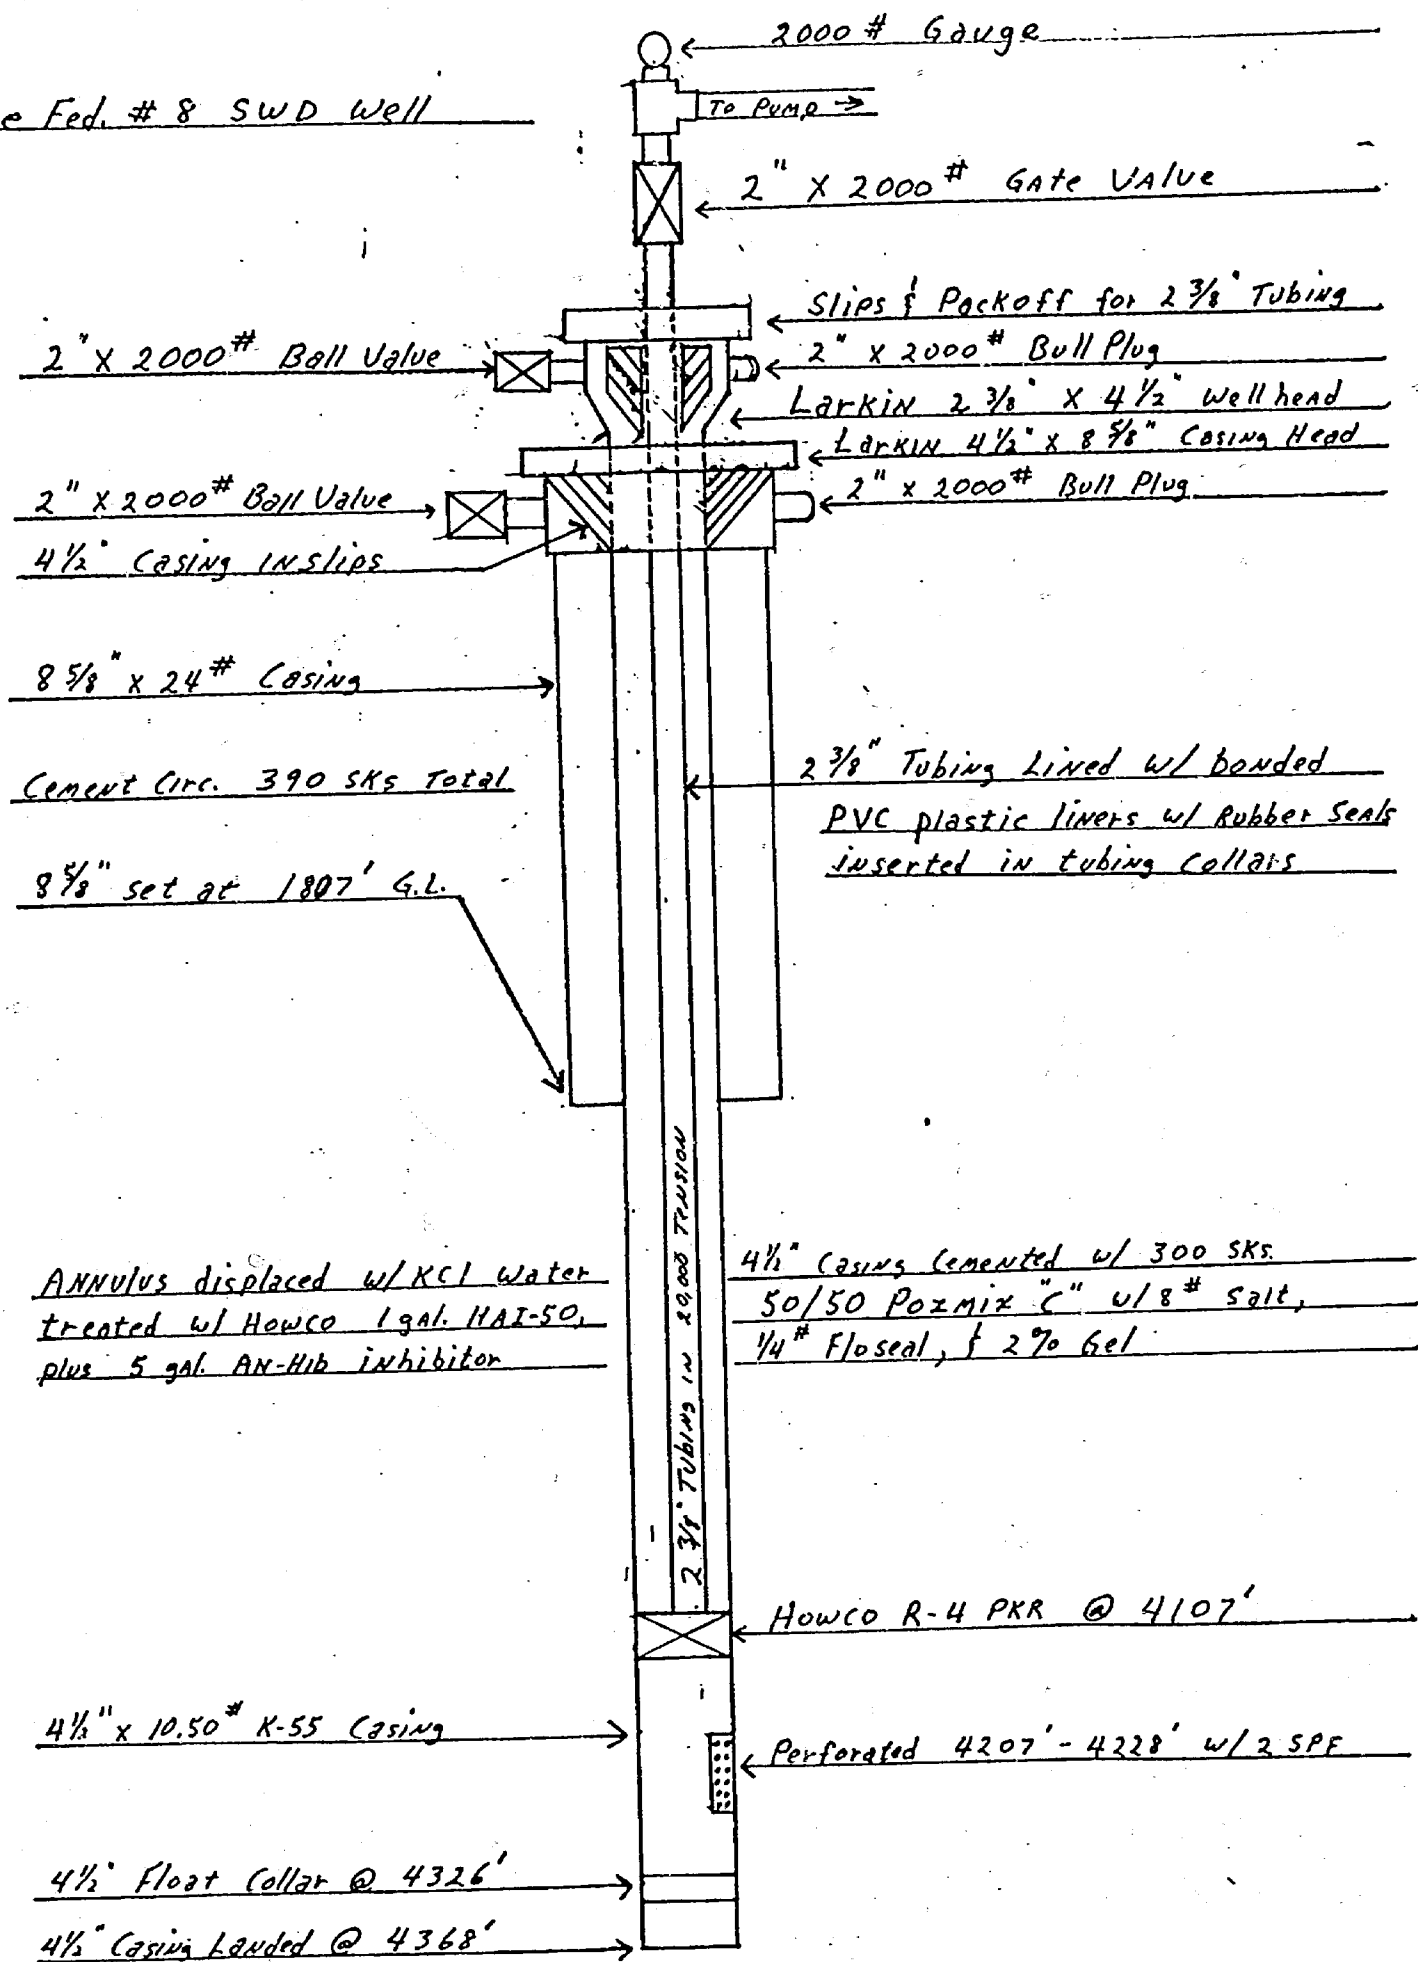 2000 # Gauge
e Fed. # 8 SWD Well
To Pump
2" X 2000 # GAte VAlve
Slips & Packoff for 2 3/8" Tubing
2" X 2000 # Ball Valve
2" x 2000 # Bull Plug
Larkin 2 3/8" X 4 1/2" Wellhead
Larkin 4 1/2" x 8 5/8" Casing Head
2" X 2000 # Ball Valve
2" x 2000 # Bull Plug
4 1/2" Casing in slips
8 5/8" x 24 # Casing
Cement Circ. 390 SKs Total
2 3/8" Tubing Lined w/ bonded
PVC plastic liners w/ Rubber Seals
inserted in tubing collars
8 5/8" set at 1807' G.L.
2 3/8" TUBING IN 20,000 TENSION
ANNulus displaced w/ KCl water
treated w/ Howco 1 gal. HAI-50,
plus 5 gal. AN-Hib inhibitor
4 1/2" Casing Cemented w/ 300 SKs.
50/50 Pozmix "C" w/ 8 # Salt,
1/4 # Floseal, & 2% Gel
Howco R-4 PKR @ 4107'
4 1/2" x 10.50 # K-55 Casing
Perforated 4207' - 4228' w/ 2 SPF
4 1/2" Float Collar @ 4326'
4 1/2" Casing Landed @ 4368'